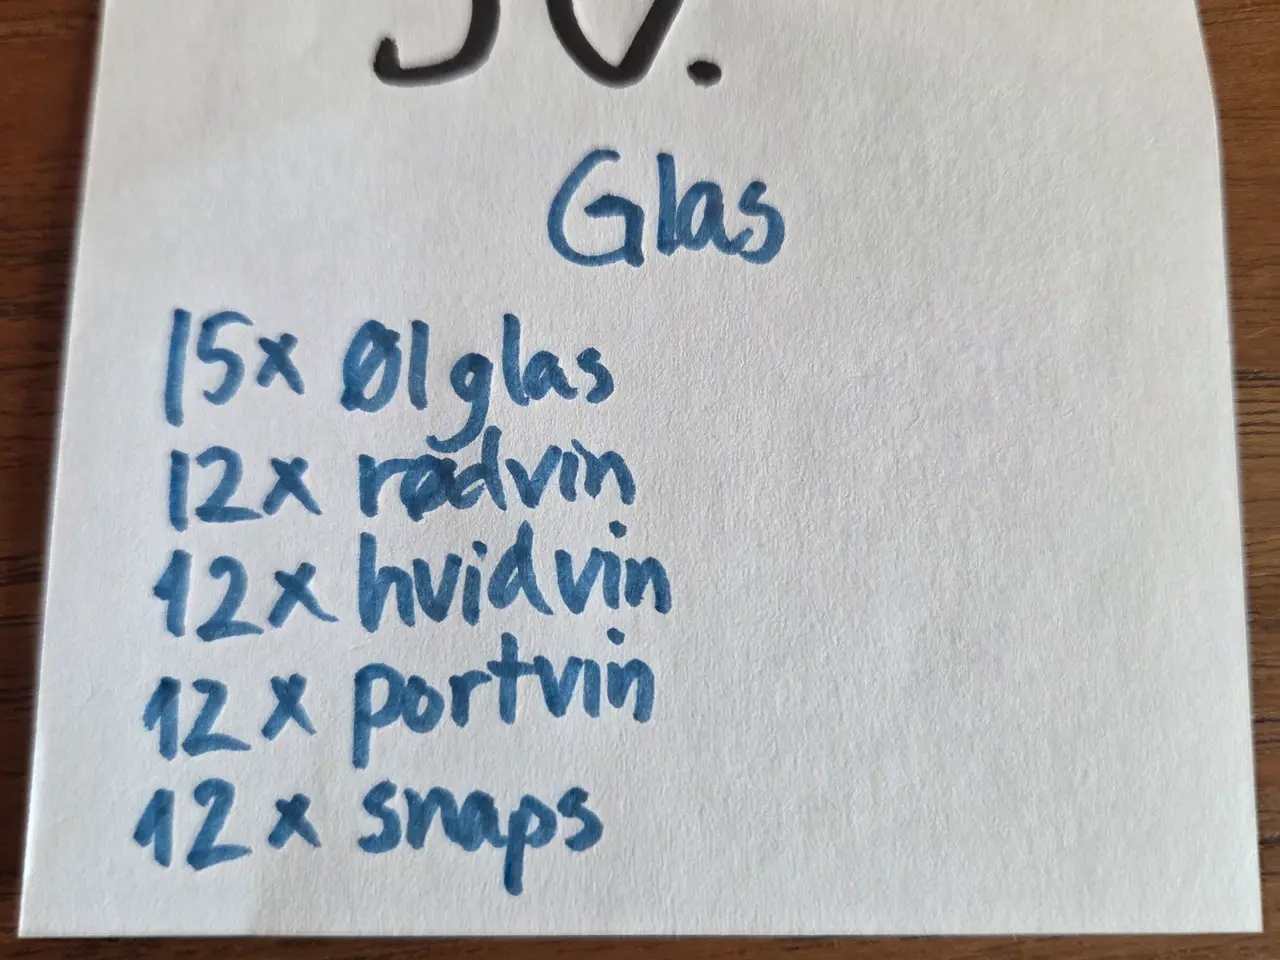 Glas
15x Øl glas
12x rødvin
12x hvidvin
12x portvin
12x snaps